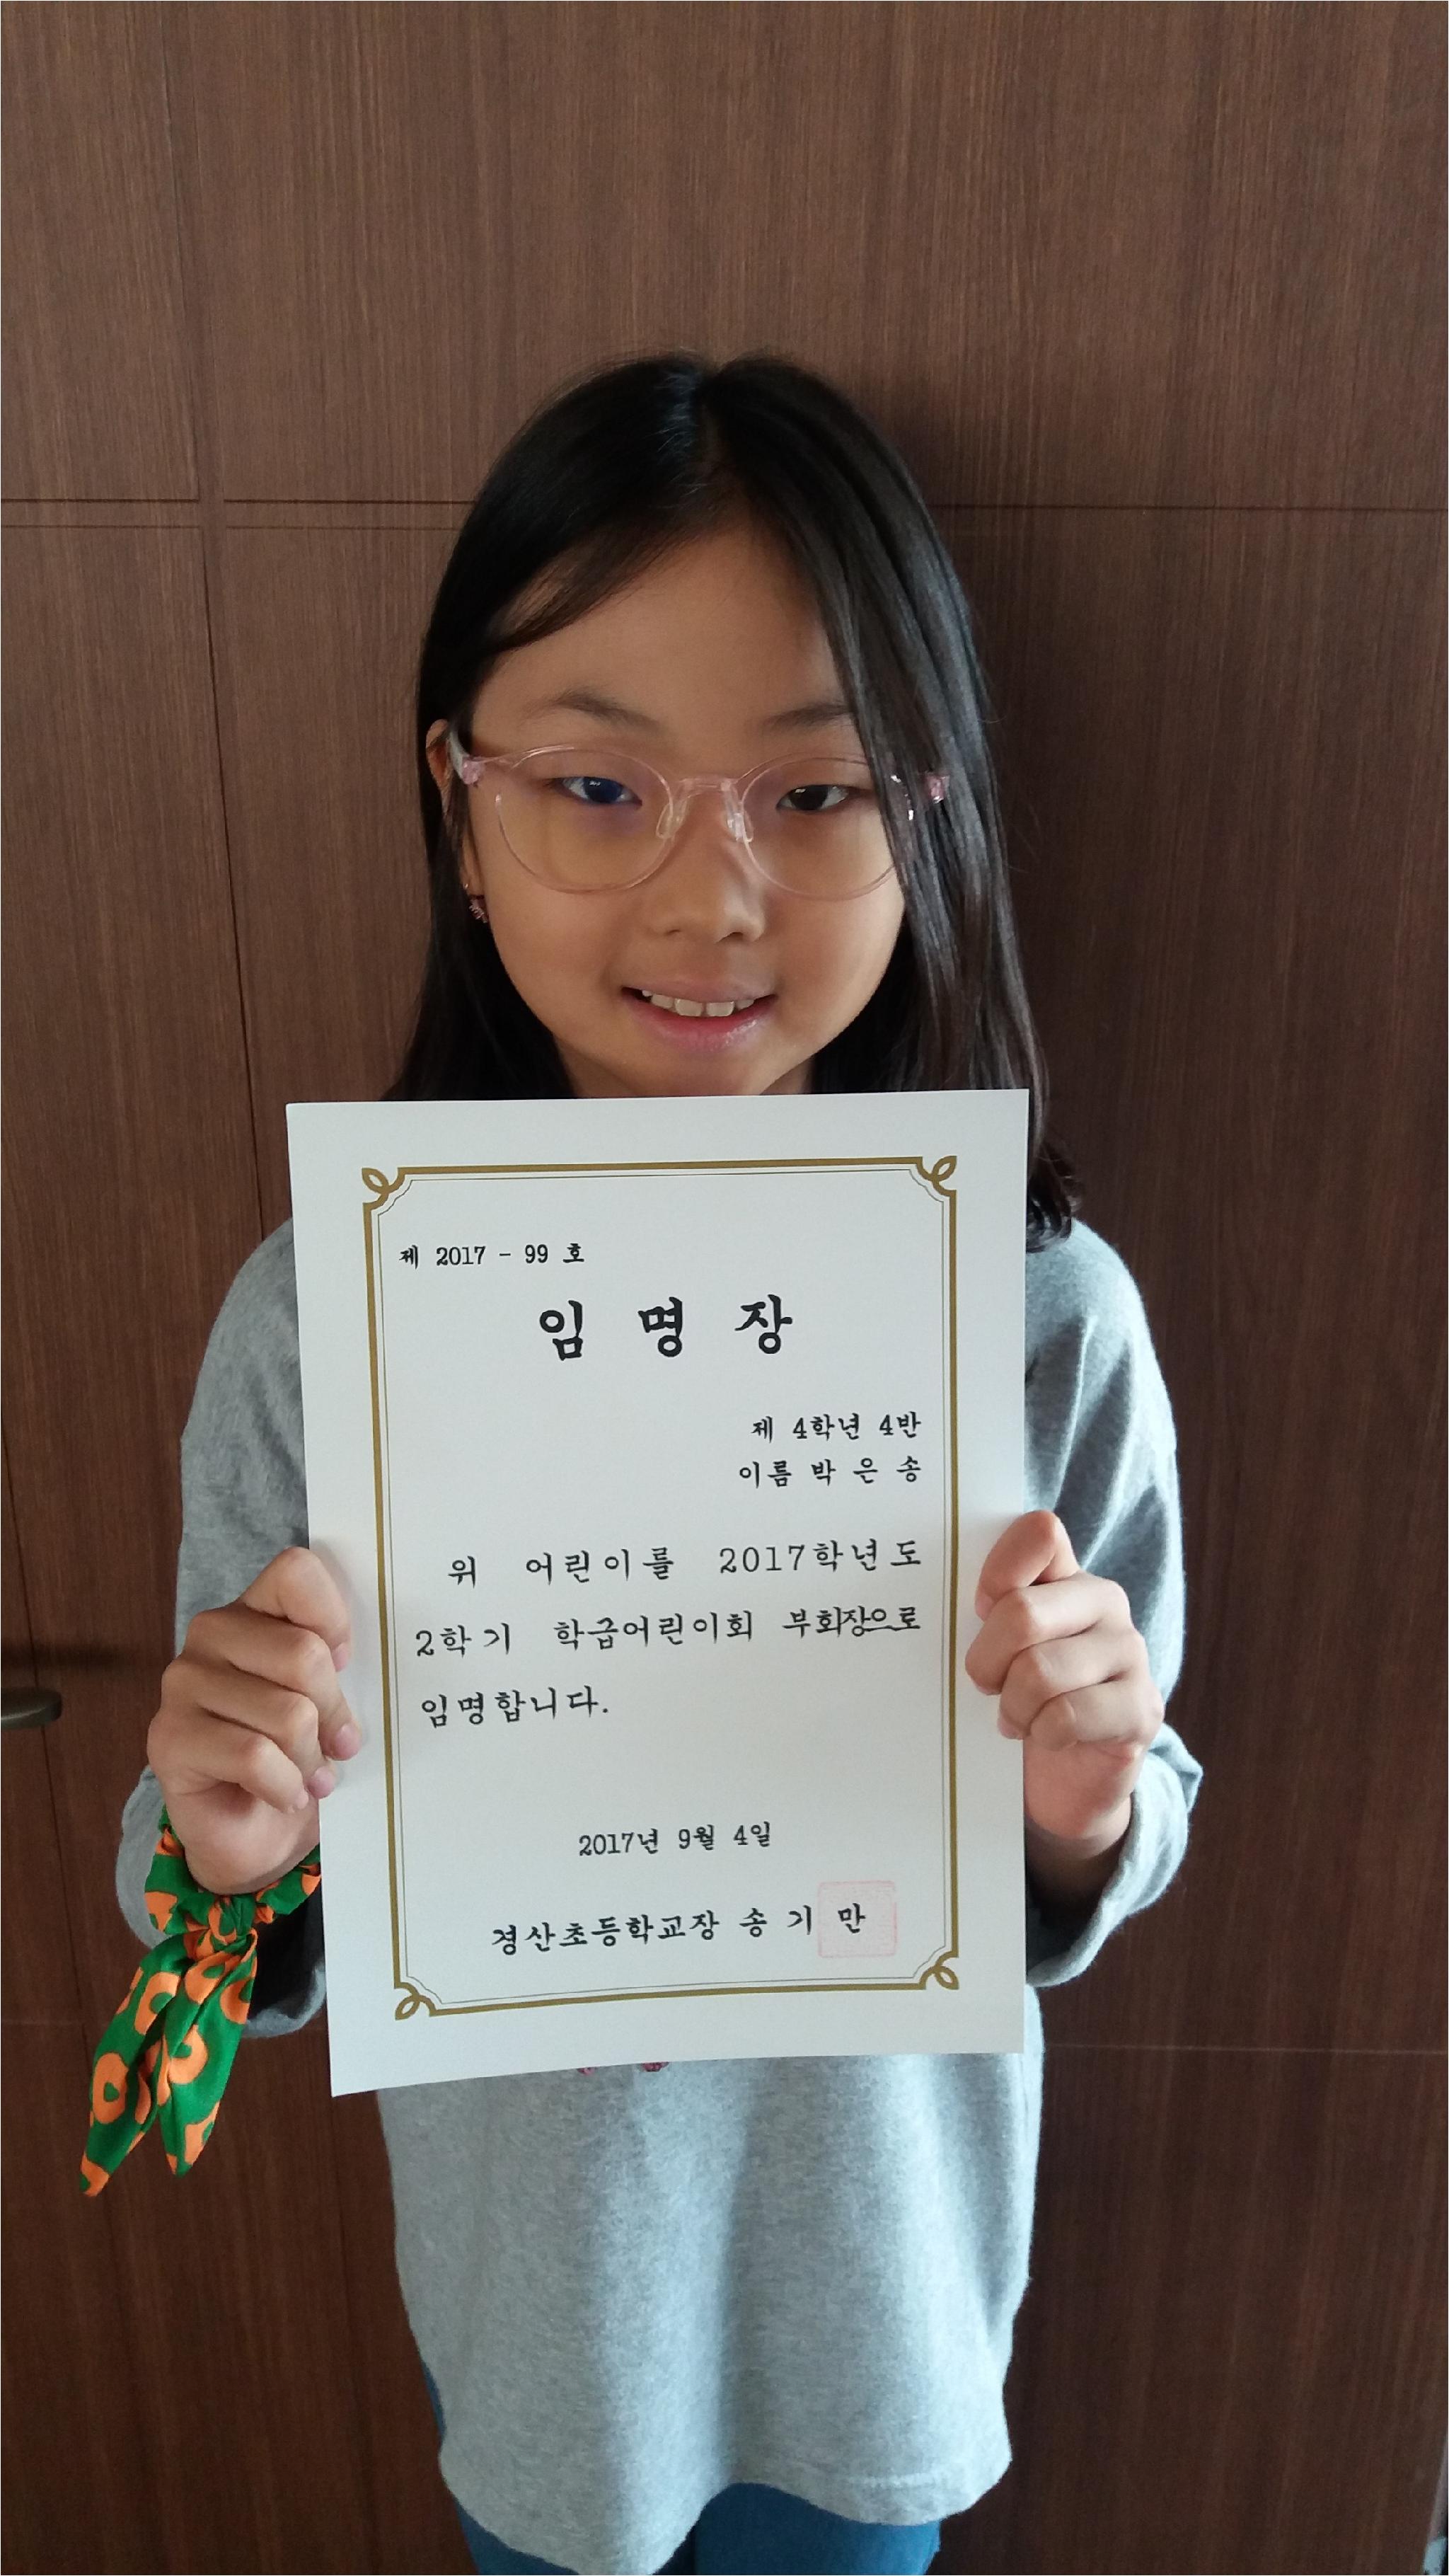 제 2017 - 99 호
임 명 장
제 4학년 4반
이름 박 은 송
위 어린이를 2017학년도
2학기 학급어린이회 부회장으로
임명합니다.
2017년 9월 4일
경산초등학교장 송 기 만